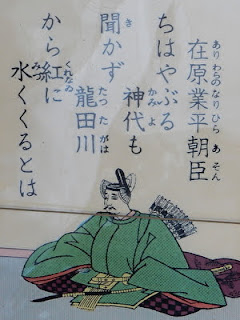 ありわらのなりひらあそん
在原業平朝臣
ちはやぶる
かみよ
神代も
き
聞かず
たつたがは
龍田川
くれなゐ
から紅に
みづ
水くくるとは